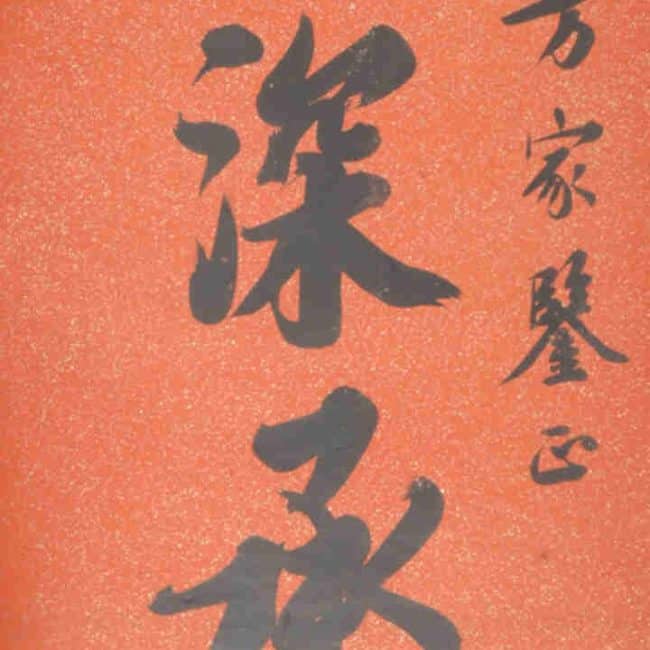 方家鑒正
深承